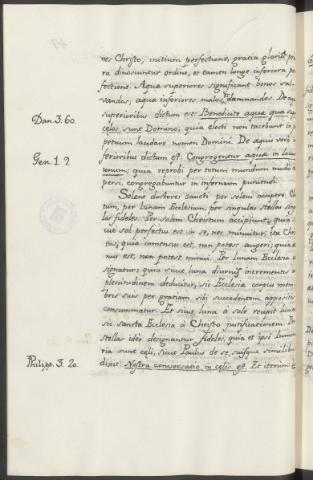 nes Christo, initium perfectione, gratia gloriâ pro
ra dinoscuntur ordine, et tamen longe inferiora p
fectione. Aquæ superiores significant bonos sal-
vandos, aquæ inferiores malos, et damnandos. De aq
superioribus dictum est: Benedicite aquæ quæ sup
cælos sunt Domino, quia electi non tacebunt in p
petuum laudare nomen Domini. De aquis verò in
ferioribus dictum est: Congregentur aquæ in locum
unum, quia reprobi per totum mundum modò
persi, congregabuntur in infernum puniendi.
Dan. 3. 60.
Gen. 1. 9.
Solent doctores sancti per solem accipere Ch
tum, per lunam Ecclesiam, per singulas stellas sing
los fideles. Per solem Christum accipiunt, quia
cut sol perfectus est in se, nec minuitur; ita Chri
tus, quia immensus est, non potest augeri; quia
nus est, non potest minui. Per lunam Ecclesia
signatur; quia sicut luna diurnis incrementis a
plenitudinem deducitur, sic Ecclesia corpus mem
bris suis per gratiam sibi succedentem appositis
consummatur. Et sicut luna à sole recipit lum
sic sancta Ecclesia à Christo justificationem. Per
stellas ideò designantur fideles, quia et ipsi lumi
ria sunt cæli, sicut Paulus de se, suisque similibus
dixit: Nostra conversatio in cælis est. Et iterum: e
Philipp. 3. 20.